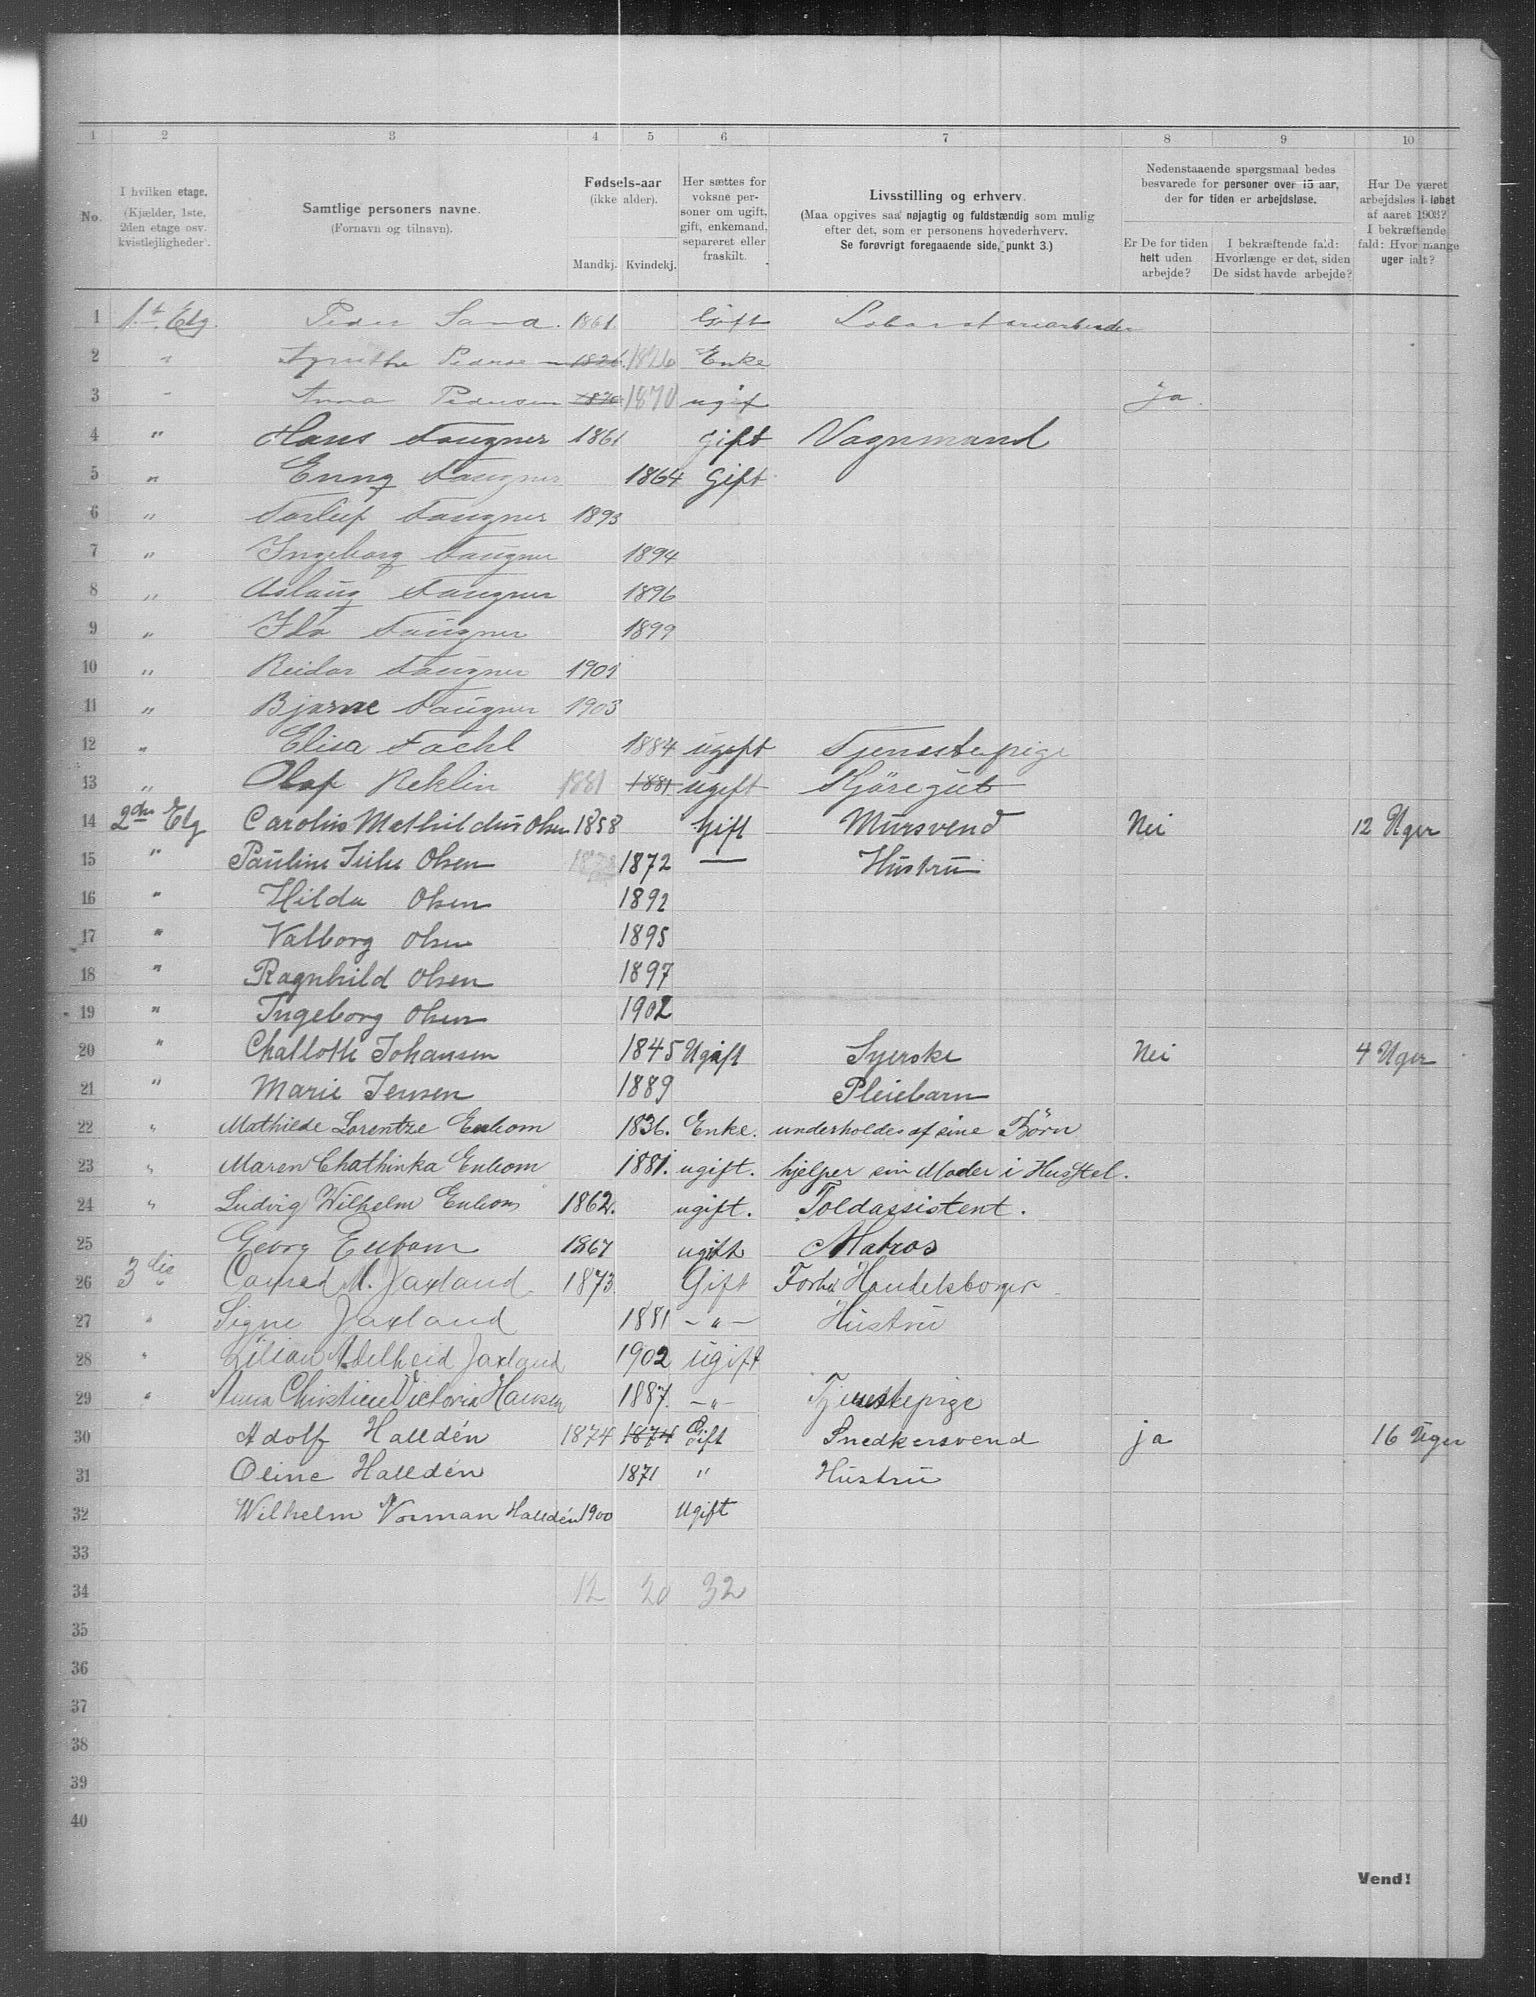 1 2 3 4 5 6 7 8 9 10
No.
I hvilken etage. (Kjælder, 1ste, 2den etage osv. kvistlejligheder).
Samtlige personers navne. (Fornavn og tilnavn).
Fødsels-aar (ikke alder). Mandkj. Kvindekj.
Her sættes for voksne personer om ugift, gift, enkemand, separeret eller fraskilt.
Livsstilling og erhverv. (Maa opgives saa nøjagtig og fuldstændig som mulig efter det, som er personens hovederhverv. Se forøvrigt foregaaende side, punkt 3.)
Nedenstaaende spørgsmaal bedes besvarede for personer over 15 aar, der for tiden er arbejdsløse.
Er De for tiden helt uden arbejde?
I bekræftende fald: Hvorlænge er det, siden De sidst havde arbejde?
Har De været arbejdsløs i løbet af aaret 1903? I bekræftende fald: Hvor mange uger ialt?
1 1ste Etg. Peder Sand 1861 Gift
2 " Pedersen 1826 1826 Enke
3 " Anna Pedersen 1870 1870 ugift ja
4 " Hans Faugner 1861 gift Vognmand
5 " Enny Faugner 1864 Gift
6 " Torleif Faugner 1893
7 " Ingeborg Faugner 1894
8 " Aslaug Faugner 1896
9 " Ida Faugner 1899
10 " Reidar Faugner 1901
11 " Bjarne Faugner 1903
12 " Elisa Fachl 1884 ugift Tjenestepige
13 " Olaf Reklin 1881 1881 ugift Kjøregut
14 2den Etg Carolius Mathildius Olsen 1858 Gift Mursvend Nei 12 Uger
15 " Pauline Julie Olsen 1872 — Hustru
16 " Hilda Olsen 1892
17 " Valborg Olsen 1895
18 " Ragnhild Olsen 1897
19 " Ingeborg Olsen 1902
20 " Challotte Johansen 1845 Ugift Syerske Nei 4 Uger
21 " Marie Jensen 1889 Pleiebarn
22 " Mathilde Lorentze Enbom 1836. Enke. underholdes af sine Börn
23 " Maren Chathinka Enbom 1881. ugift. hjelper sin Moder i Husstel.
24 " Ludvig Wilhelm Enbom 1862. ugift. Toldassistent.
25 Georg Enbom 1867 ugift Matros
26 3die " Conrad M. Jaxland 1873. Gift Forhv Handelsborger
27 " Signe Jaxland 1881 - " - Hustru
28 " Lilian Adelheid Jaxland 1902 ugift
29 " Anna Christine Victoria Hansen 1887. - " - Tjenestepige
30 Adolf Halldén 1874 1874 Gift Snedkersvend ja 16 Uger
31 Oline Halldén 1871 " Hustru
32 Wilhelm Norman Halldén 1900 Ugift
33
34 12 20 32
35
36
37
38
39
40
Vend!